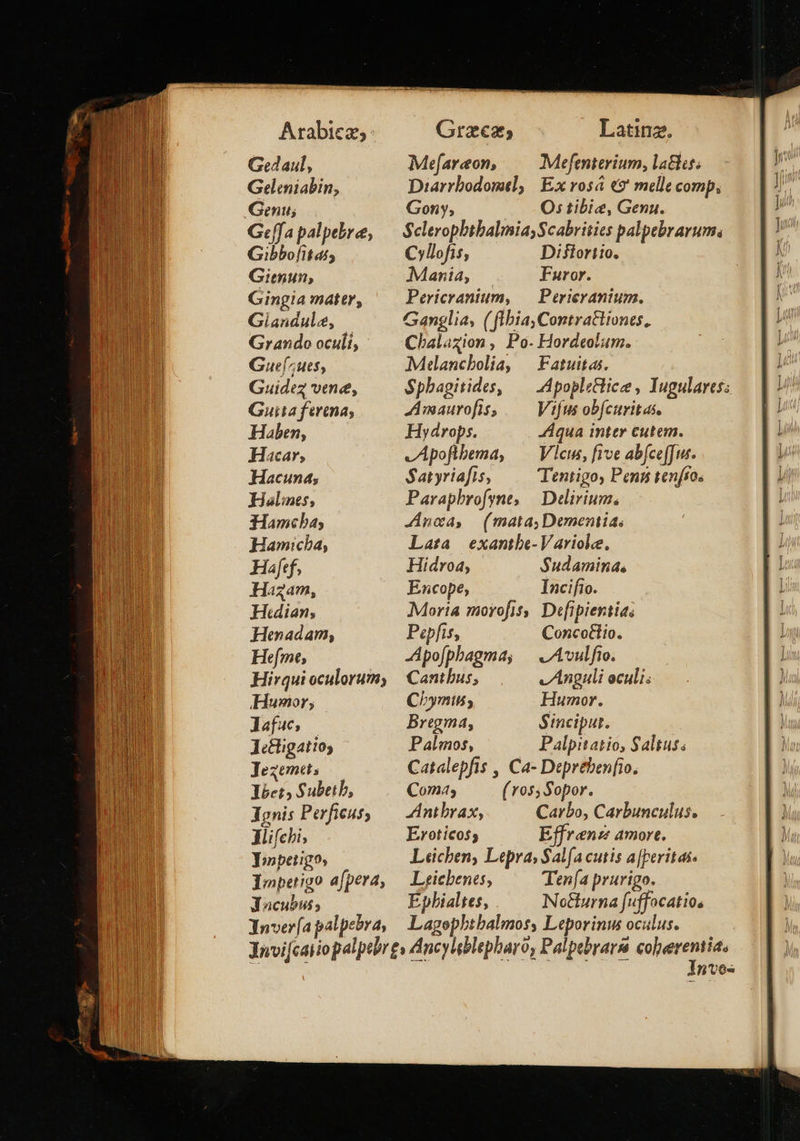 Arabicæ, Græcæ, Latinæ.
Gedaul, Meſaræon, Meſenterium, lactes.
Geleniabin, Diarrhodomel, Ex rosâ & melle comp.
Genu, Gony, Os tibiæ, Genu.
Geſſa palpebræ, Sclerophthalmia, Scabrities palpebrarum.
Gibboſitas, Cylloſis, Diſtortio.
Gienun, Mania, Furor.
Gingia mater, Pericranium, Pericranium.
Glandulæ, Ganglia, (ſthia, Contractiones.
Grando oculi, Chalazion, Po- Hordeolum.
Melancholia, Fatuitas.
Guidez venæ, Sphagitides, Apoplecticæ, Iugulares.
Gutta ſerena, Amauroſis, Viſus obſcuritas.
Haben, Hydrops. Aqua inter cutem.
Hacar, Apoſthema, Vlcus, ſive abſceſſus.
Hacuna, Satyriaſis, Tentigo, Penis tenſio.
Halmes, Paraphroſyne, Delirium.
Hamcha, Anœa, (mata, Dementia.
Hamicha, Lata exanthe- Variolæ.
Haſef, Hidroa, Sudamina.
Hazam, Encope, Inciſio.
Hedian, Moria moroſis, Deſipientia.
Henadam, Pepſis, Concoctio.
Heſme, Apoſphagma, Avulſio.
Hirqui oculorum, Canthus, Anguli oculi.
Humor, Chymus, Humor.
Iafuc, Bregma, Sinciput.
Iectigatio, Palmos, Palpitatio, Saltus.
Iezemet, Catalepſis, Ca- Deprehenſio.
Ibet, Subeth, Coma, (ros, Sopor.
Ignis Perſicus, Anthrax, Carbo, Carbunculus.
Iliſchi, Eroticos, Effrenis amore.
Impetigo, Leichen, Lepra, Salſa cutis aſperitas.
Impetigo aſpera, Leichenes, Tenſa prurigo.
Incubus, Ephialtes, Nocturna ſuffocatio.
Inverſa palpebra, Lagophthalmos, Leporinus oculus.
Inviſcatio palpebræ, Ancyleblepharō, Palpebrarū cohærentia.
Inve-